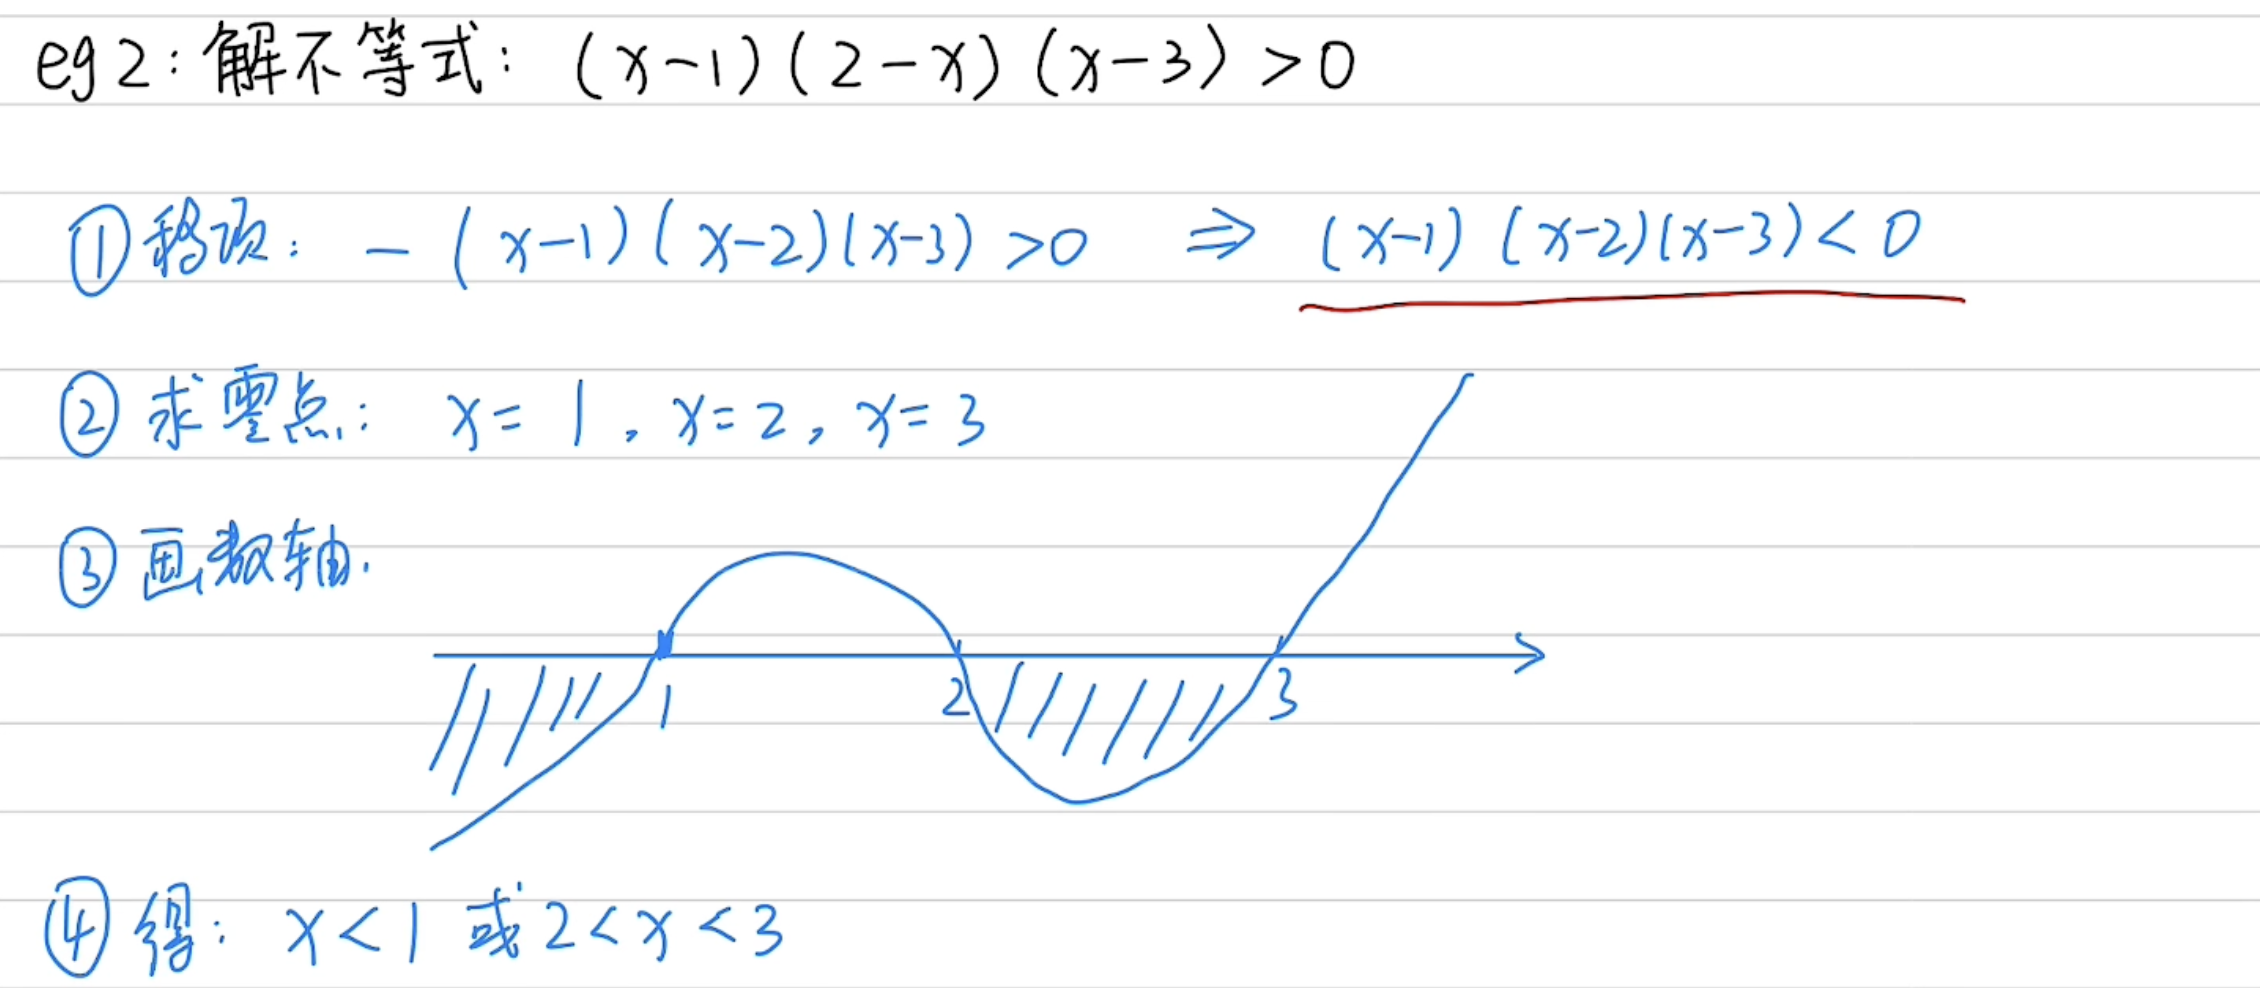 eg2:解不等式: (x-1)(2-x)(x-3)>0
①移项: -(x-1)(x-2)(x-3)>0 ⇒ (x-1)(x-2)(x-3)<0
②求零点: x=1, x=2, x=3
③画数轴.
1 2 3
④得: x<1 或 2<x<3